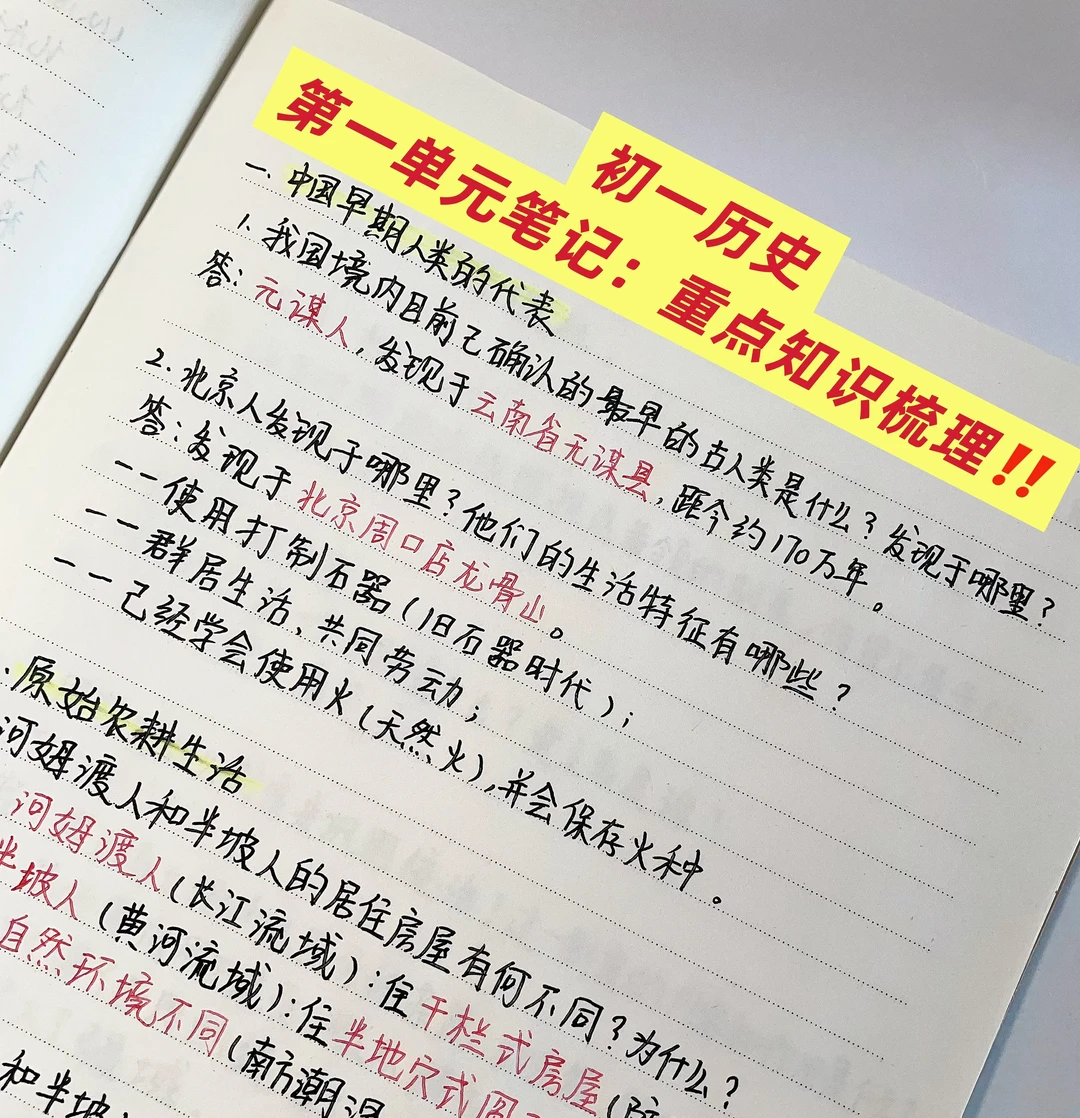 初一历史
第一单元笔记：重点知识梳理!!
一、中国早期人类的代表
1. 我国境内目前已确认的最早的古人类是什么？发现于哪里？
答：元谋人，发现于云南省元谋县，距今约170万年。
2. 北京人发现于哪里？他们的生活特征有哪些？
答：发现于北京周口店龙骨山。
——使用打制石器（旧石器时代）；
——群居生活、共同劳动；
——已经学会使用火（天然火），并会保存火种。
、原始农耕生活
河姆渡人和半坡人的居住房屋有何不同？为什么？
河姆渡人（长江流域）：住干栏式房屋（
半坡人（黄河流域）：住半地穴式圆
自然环境不同（南方潮湿
和半坡